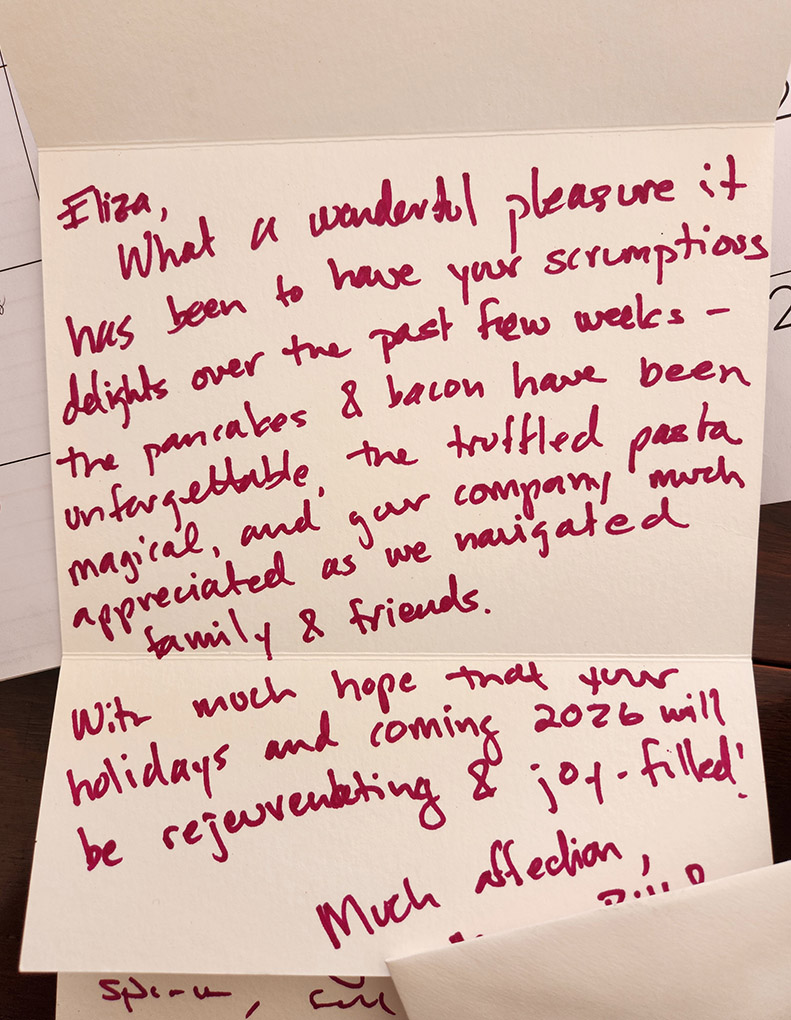 Eliza,
What a wonderful pleasure it
has been to have your scrumptious
delights over the past few weeks -
the pancakes & bacon have been
unforgettable, the truffled pasta
magical, and your company much
appreciated as we navigated
family & friends.
With much hope that your
holidays and coming 2026 will
be rejeuvenating & joy-filled!
Much affection,
2